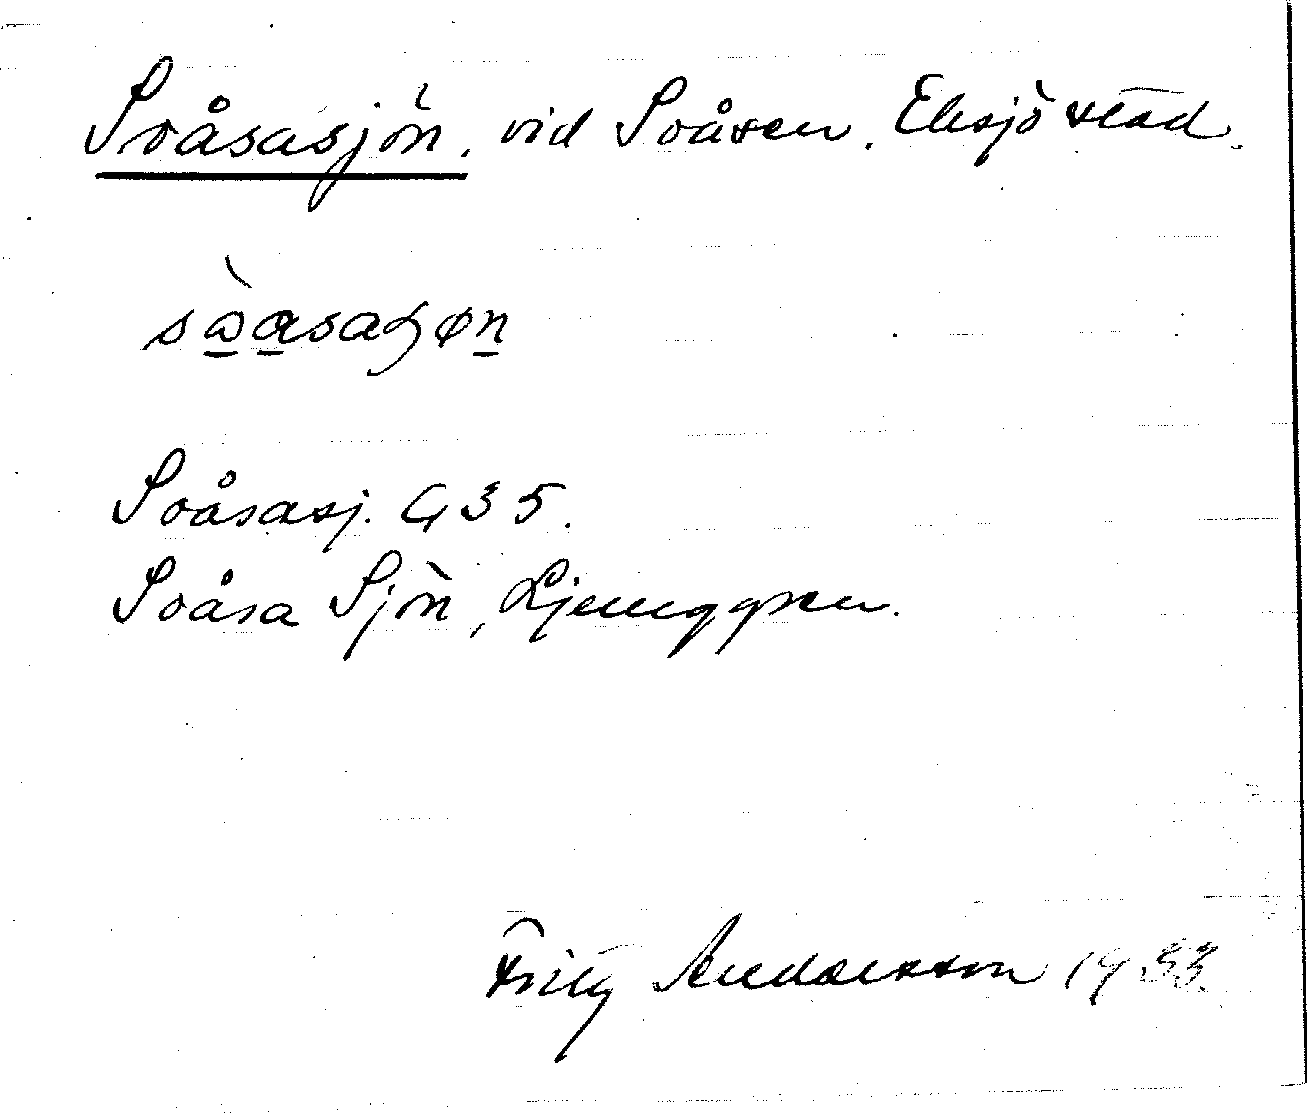 Soåsasjön, vid Soåsen. Eksjö stad.
Soåsasj. G 35.
Soåsa Sjön, Ljunggren.
Fritz Andersson 1933.